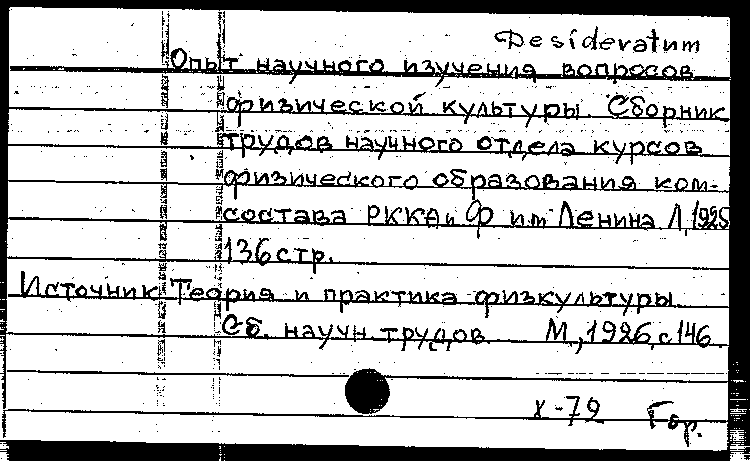 Desideratum
Опыт научного изучения вопросов
физической культуры. Сборник
трудов научного отдела курсов
физического образования ком-
состава РККА и Ф им Ленина Л, 1925
136 стр.
Источник Теория и практика физкультуры.
Сб. научн. трудов М., 1926, с 146
X-79 Гор.